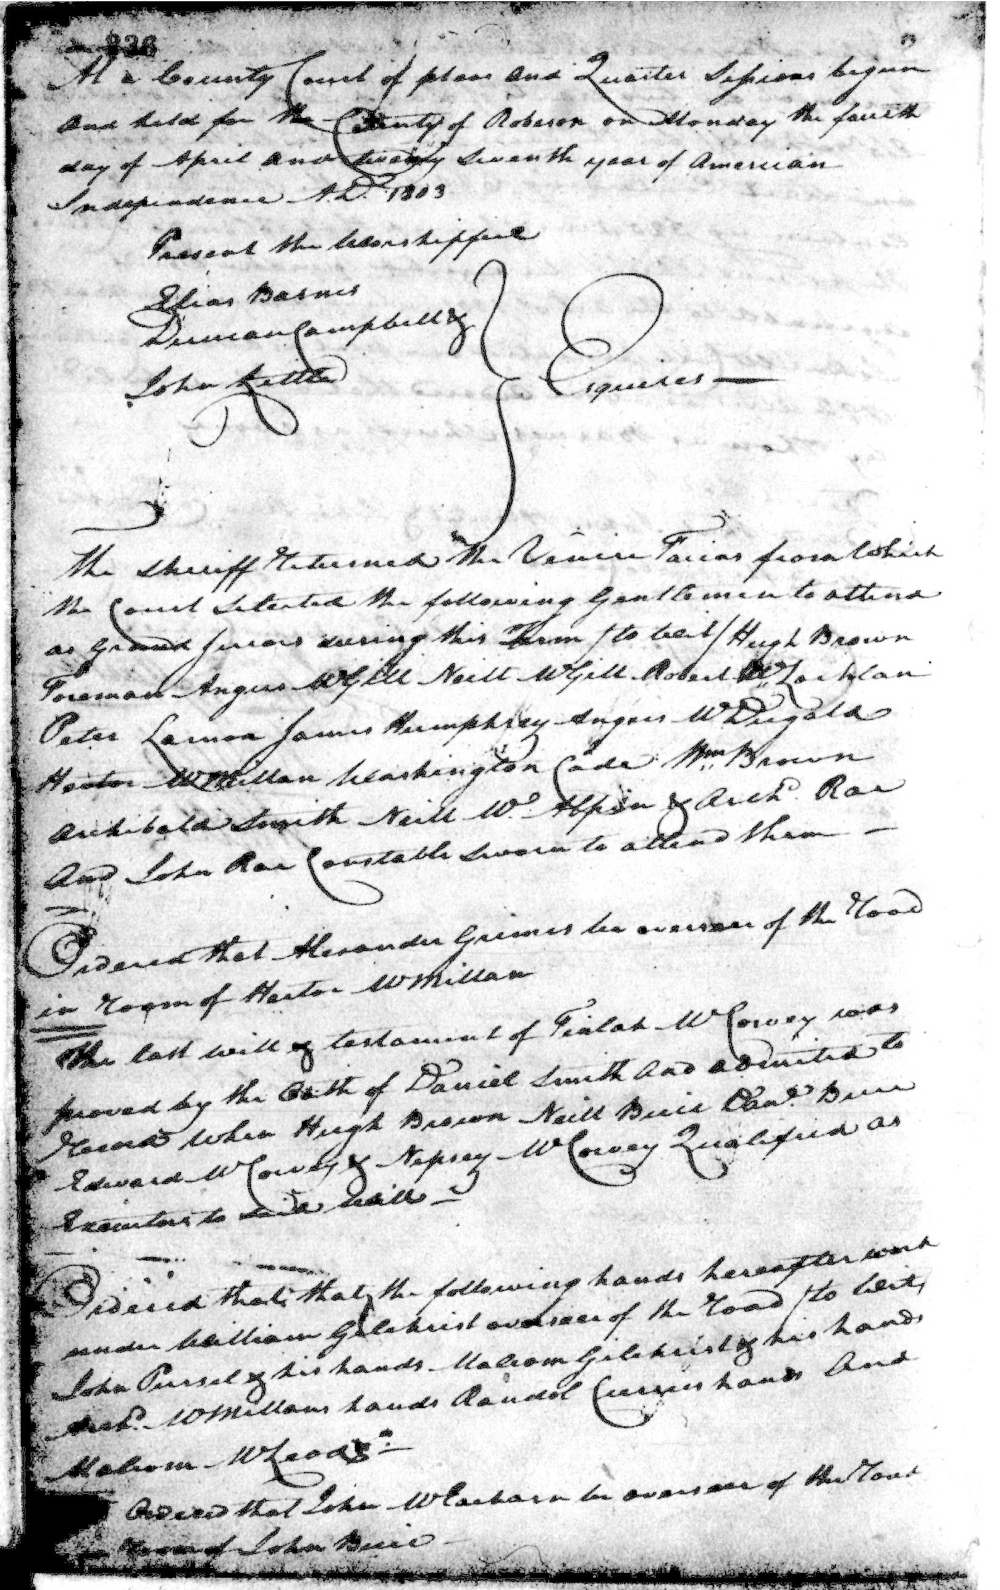 236
At a County Court of pleas and Quarter Sessions begun
and held for the County of Robeson on Monday the fourth
day of April and twenty seventh year of American
Independence A.D. 1803
Present the Worshipfull
Elias Barnes
Duncan Campbell &
John
Esquires
The Sheriff returned the Venire Facias from which
the Court selected the following Gentlemen to attend
as Grand Jurors during this Term / to wit / Hugh Brown
Foreman Angus McGill Neill McGill Robert McLachlan
Peter Lamon James Humphrey Angus McDugald
Hector McMillan Washington Cade Wm. Brown
Archibald Smith Neill Mc. Alpin & Archd. Rae
And John Rae Constable sworn to attend them
Ordered that Alexander Grimes be overseer of the road
in room of Hector McMillan
The last will & testament of McCorvey was
proved by the Oath of Daniel Smith and admited to
Record when Hugh Brown Neill Buie Danl. Buie
Edward McCorvey & Nepsey McCorvey Qualified as
Executors to said Will
Ordered that that the following hands hereafter work
under William Gilchrist overseer of the road / to wit /
John Pursel & his hands Malcom Gilchrist & his hands
Archd. McMillans hands Randol Curries hands and
Malcom McLeods
Ordered that John McEachern be overseer of the road
room of John Buie